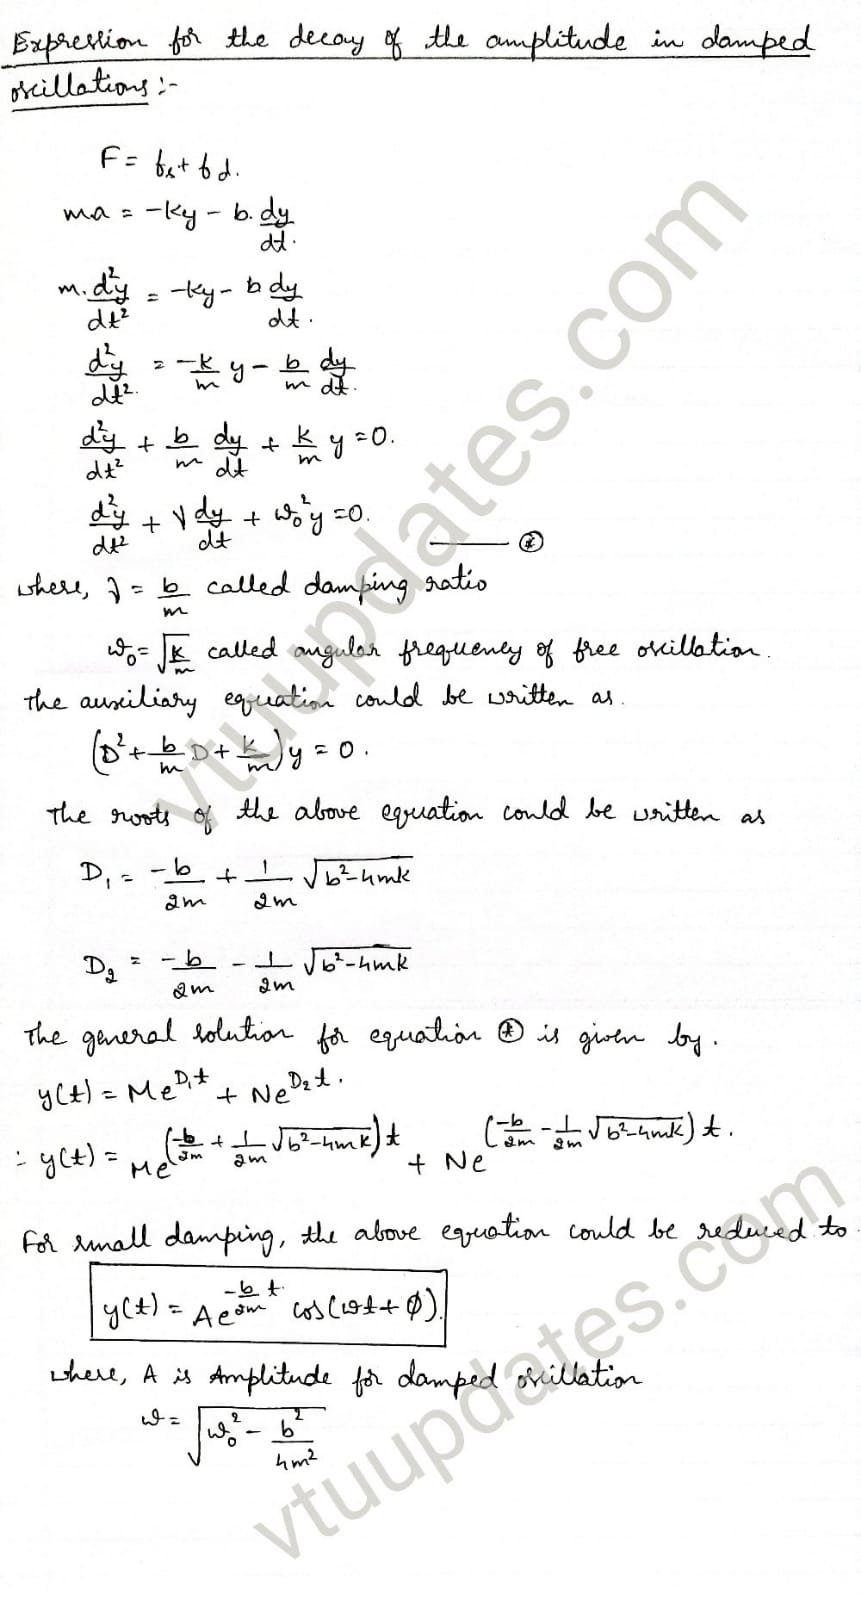 Expression for the decay of the amplitude in damped
oscillations :-
F = fs + fd.
ma = -ky - b. dy/dt.
m. d²y/dt² = -ky - b dy/dt.
d²y/dt². = -k/m y - b/m dy/dt.
d²y/dt² + b/m dy/dt + k/m y = 0.
d²y/dt² + γ dy/dt + ω₀² y = 0. ——— ⊛
where, γ = b/m called damping ratio
ω₀ = √(k/m) called angular frequency of free oscillation.
The auxiliary equation could be written as.
(D² + b/m D + k/m) y = 0.
The roots of the above equation could be written as
D₁ = -b/2m + 1/2m √(b²-4mk)
D₂ = -b/2m - 1/2m √(b²-4mk)
The general solution for equation ⊛ is given by.
y(t) = Me^(D₁t) + Ne^(D₂t).
∴ y(t) = Me^(-b/2m + 1/2m √(b²-4mk))t + Ne^(-b/2m - 1/2m √(b²-4mk))t.
For small damping, the above equation could be reduced to.
y(t) = Ae^(-b/2m t) cos(ωt + φ).
where, A is Amplitude for damped oscillation
ω = √(ω₀² - b²/4m²)
vtuupdates.com
vtuupdates.com